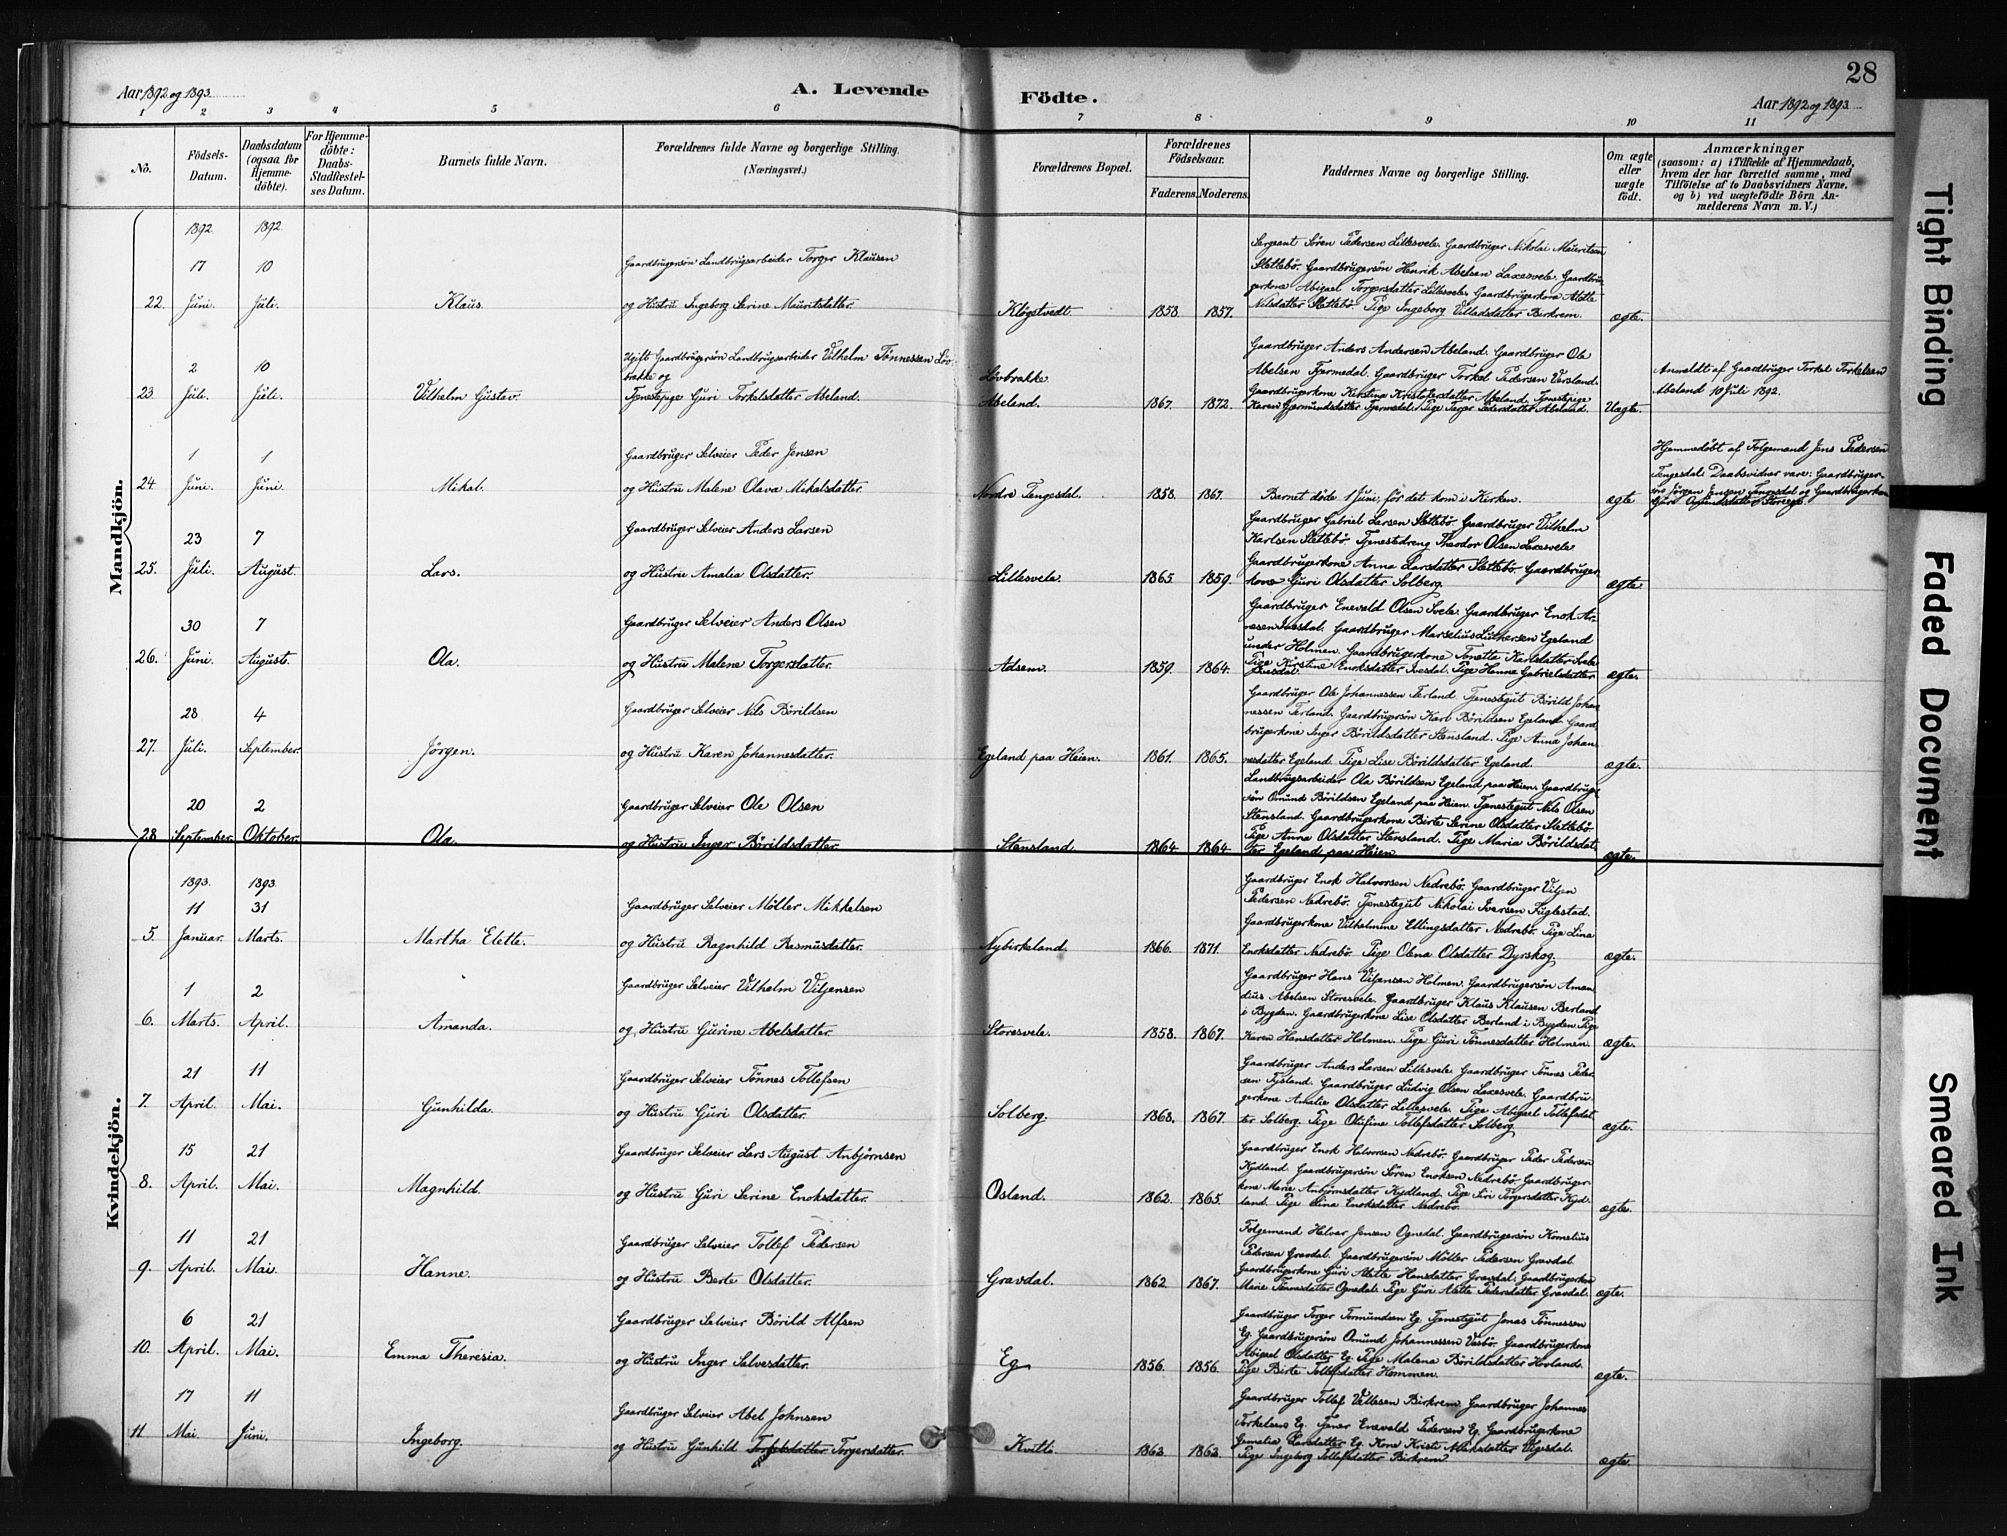 28
Aar 1892 og 1893.
A. Levende Födte.
Aar 1892 og 1893
1 2 3 4 5 6 7 8 9 10 11
No.
Födsels-Datum.
Daabsdatum (ogsaa for Hjemme-döbte).
For Hjemme-döbte: Daabs-Stadfæstel-ses Datum.
Barnets fulde Navn.
Forældrenes fulde Navne og borgerlige Stilling. (Næringsvei.)
Forældrenes Bopæl.
Forældrenes Födselsaar.
Faderens. Moderens.
Faddernes Navne og borgerlige Stilling.
Om ægte eller uægte födt.
Anmærkninger
(saasom: a) i Tilfælde af Hjemmedaab,
hvem der har forrettet samme, med
Tilföielse af to Daabsvidners Navne.
og b) ved uægtefödte Börn An-
melderens Navn m. V.)
Mandkjön.
1892 1892
22. 17 Juni. 10 Juli. Klaus.
Gaardbrugersøn Landbrugsarbeider Torger Klausen
og Hustru Ingeborg Serine Mauritsdatter.
Kløgstvedt 1858 1857.
Sergeant Søren Pedersen Lillesvele. Gaardbruger Nikolai Mauritsen
Slettebö. Gaardbrugersøn Henrik Abelsen Laxesvele. Gaardbru
gerkone Abigael Torgersdatter Lillesvele. Gaardbrugerkone Alette
Nilsdatter Slettebö. Pige Ingeborg Villadsdatter Birkrem.
ægte.
23. 2 Juli. 10 Juli. Vilhelm Gustav.
Ugift Gaardbrugersøn Landbrugsarbeider Vilhelm Tønnessen Löv
brække og
Tjenestepige Guri Torkelsdatter Abeland.
Lövbrække.
Abeland. 1867. 1872
Gaardbruger Anders Andersen Abeland. Gaardbruger Ole
Abelsen Tjermedal. Gaardbruger Torkel Pedersen Versland.
Gaardbrugerkone Kirstine Kristofersdatter Abeland. Tjenestepige
Karen Gjermundsdatter Tjermedal. Pige Pedersdatter Abeland.
Uægte.
Anmeldt af Gaardbruger Torkel Torkelsen
Abeland 10 Juli 1892.
24. 1 Juni. 1 Juni. Mikal.
Gaardbruger Selveier Peder Jensen
og Hustru Malene Olava Mikalsdatter.
Nordre Tengesdal. 1858. 1867.
Barnet døde 1 Juni før det kom i Kirken.
ægte
Hjemmedöbt af Folgemand Jens Pedersen
Tengesdal. Daabsvidner vare: Gaardbruger-
søn Jörgen Jensen Tengesdal og Gaardbrugerkone
Guri Omundsdatter
25. 23 Juli. 7 August. Lars.
Gaardbruger Selveier Anders Larsen
og Hustru Amalia Olsdatter.
Lillesvele. 1865 1859.
Gaardbruger Gabriel Larsen Slettebö. Gaardbruger Vilhelm
Karlsen Slettebö. Tjenestedreng Theodor Olsen Laxesvele.
Gaardbrugerkone Anna Larsdatter Slettebö. Gaardbruger
kone Guri Olsdatter Solberg.
ægte
26. 30 Juni. 7 August. Ola.
Gaardbruger Selveier Anders Olsen
og Hustru Malene Torgersdatter.
Adsem. 1859. 1864.
Gaardbruger Enevald Olsen Svele. Gaardbruger Enok Ar-
nesen Ivesdal. Gaardbruger Marselius Egeland
under Holmen. Gaardbrugerkone Tonetta Karlsdatter Svele
Pige Kirstine Enoksdatter Ivesdal. Pige Hanne Gabrielsdatter
ægte.
27. 28 Juli. 4 September. Jørgen.
Gaardbruger Selveier Nils Börildsen
og Hustru Karen Johannesdatter.
Egeland paa Heien. 1861. 1865.
Gaardbruger Ole Johannessen Terland. Tjenestegut Börild Johan
nessen Terland. Gaardbrugersøn Karl Börildsen Egeland. Gaard
brugerkone Inger Börildsdatter Stensland. Pige Anna Johan
nesdatter Egeland. Pige Lise Börildsdatter Egeland.
ægte.
28 20 September. 2 Oktober. Ola.
Gaardbruger Selveier Ole Olsen
og Hustru Inger Börildsdatter
Stensland 1864 1864
Landbrugsarbeider Ola Börildsen Egeland paa Heien. Gaardbruger
søn Omund Börildsen Egeland paa Heien. Tjenestegut Nils Olsen
Stensland. Gaardbrugerkone Birte Serine Olsdatter Slettebö.
Pige Anna Olsdatter Stensland. Pige Maria Börildsdat
ter Egeland paa Heien
ægte.
Kvindekjön.
1893. 1893.
5. 11 Januar. 31 Marts. Martha Elette.
Gaardbruger Selveier Möller Mikkelsen
og Hustru Ragnhild Rasmusdatter.
Nybirkeland. 1866. 1871.
Gaardbruger Enok Halvorsen Nedrebö. Gaardbruger Viljen
Pedersen Nedrebö. Tjenestegut Nikolai Iversen Fuglestad.
Gaardbrugerkone Vilhelmine Ellingsdatter Nedrebö. Pige Lina
Enoksdatter Nedrebö. Pige Olena Olsdatter Dyrskog.
ægte.
6. 1 Marts. 2 April. Amanda.
Gaardbruger Selveier Vilhelm Viljensen
og Hustru Gurine Abelsdatter.
Storesvele. 1858. 1867.
Gaardbruger Hans Viljensen Holmen. Gaardbrugersøn Aman
dius Abelsen Storesvele. Gaardbruger Klaus Klausen Berland
i Bygden. Gaardbrugerkone Lise Olsdatter Berland i Bygden Pige
Karen Hansdatter Holmen. Pige Guri Tönnesdatter Holmen.
ægte.
7. 21 April. 11 Mai. Gunhilda.
Gaardbruger Selveier Tönnes Tollefsen
og Hustru Guri Olsdatter.
Solberg. 1868. 1867.
Gaardbruger Anders Larsen Lillesvele. Gaardbruger Tönnes Peder
sen Tysland. Gaardbruger Ludvig Olsen Laxesvele. Gaardbru
gerkone Amalie Olsdatter Lillesvele. Pige Abigael Tollefsdat
ter Solberg. Pige Olufine Tollefsdatter Solberg
ægte.
8. 15 April. 21 Mai. Magnhild.
Gaardbruger Selveier Lars August Anbjørnsen
og Hustru Guri Serine Enoksdatter.
Osland. 1862. 1865.
Gaardbruger Enok Halvorsen Nedrebö. Gaardbruger Peder Pedersen
Kydland. Gaardbrugersøn Sören Enoksen Nedrebö. Gaardbruger
kone Marie Anbjørnsdatter Kydland. Pige Siri Torgersdatter Kyd-
land. Pige Lina Enoksdatter Nedrebö.
ægte.
9. 11 April. 21 Mai. Hanne.
Gaardbruger Selveier Tollef Pedersen
og Hustru Berte Olsdatter.
Gravdal. 1862 1867.
Folgemand Halvor Jensen Ognedal. Gaardbrugersøn Kornelius
Pedersen Gravdal. Gaardbrugersøn Möller Pedersen Gravdal
Gaardbrugerkone Guri Alette Hansdatter Gravdal. Gaardbrugerkone
Marie Tönnesdatter Ognedal. Pige Guri Alette Pedersdatter Gravdal.
ægte.
10. 6 April. 21 Mai. Emma Theresia.
Gaardbruger Selveier Börild Alfsen
og Hustru Inger Salvesdatter.
Eg 1856. 1856.
Gaardbruger Torger Tormundsen Eg. Tjenestegut Jonas Tönnessen
Eg. Gaardbrugersøn Omund Johannessen Vasbö. Gaardbrugerkone
Abigael Olsdatter Eg. Pige Malena Börildsdatter Hovland.
Pige Birte Tollefsdatter Hommen.
ægte.
11 17 Mai. 11 Juni. Ingeborg.
Gaardbruger Selveier Abel Johnsen
og Hustru Gunhild Torgersdatter.
Kvitli 1863 1863
Gaardbruger Tollef Villesen Birkrem. Gaardbruger Johannes
Torkelsen Eg. Tjener Enevald Pedersen Eg. Gaardbrugerkone
Larsdatter Eg. Kone Kristi Vigesdal.
Pige Ingeborg Tollefsdatter Birkrem
ægte.
Tight Binding
Faded Document
Smeared Ink